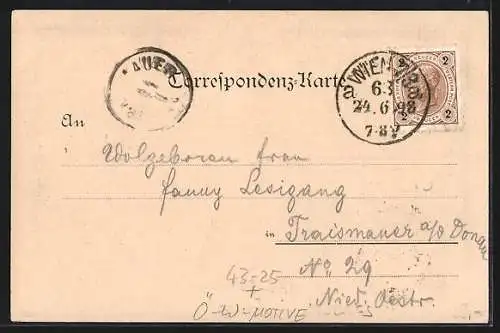 AUER
Correspondenz-Karte
WIEN
63
24.6.98
7-8V
2 2
2 2
An
Wolgeboran Frau
Fanny Lesigang
in Traismauer a/d Donau
No 29
Nied. Oestr.
43-25
+
Ö-W-MOTIVE